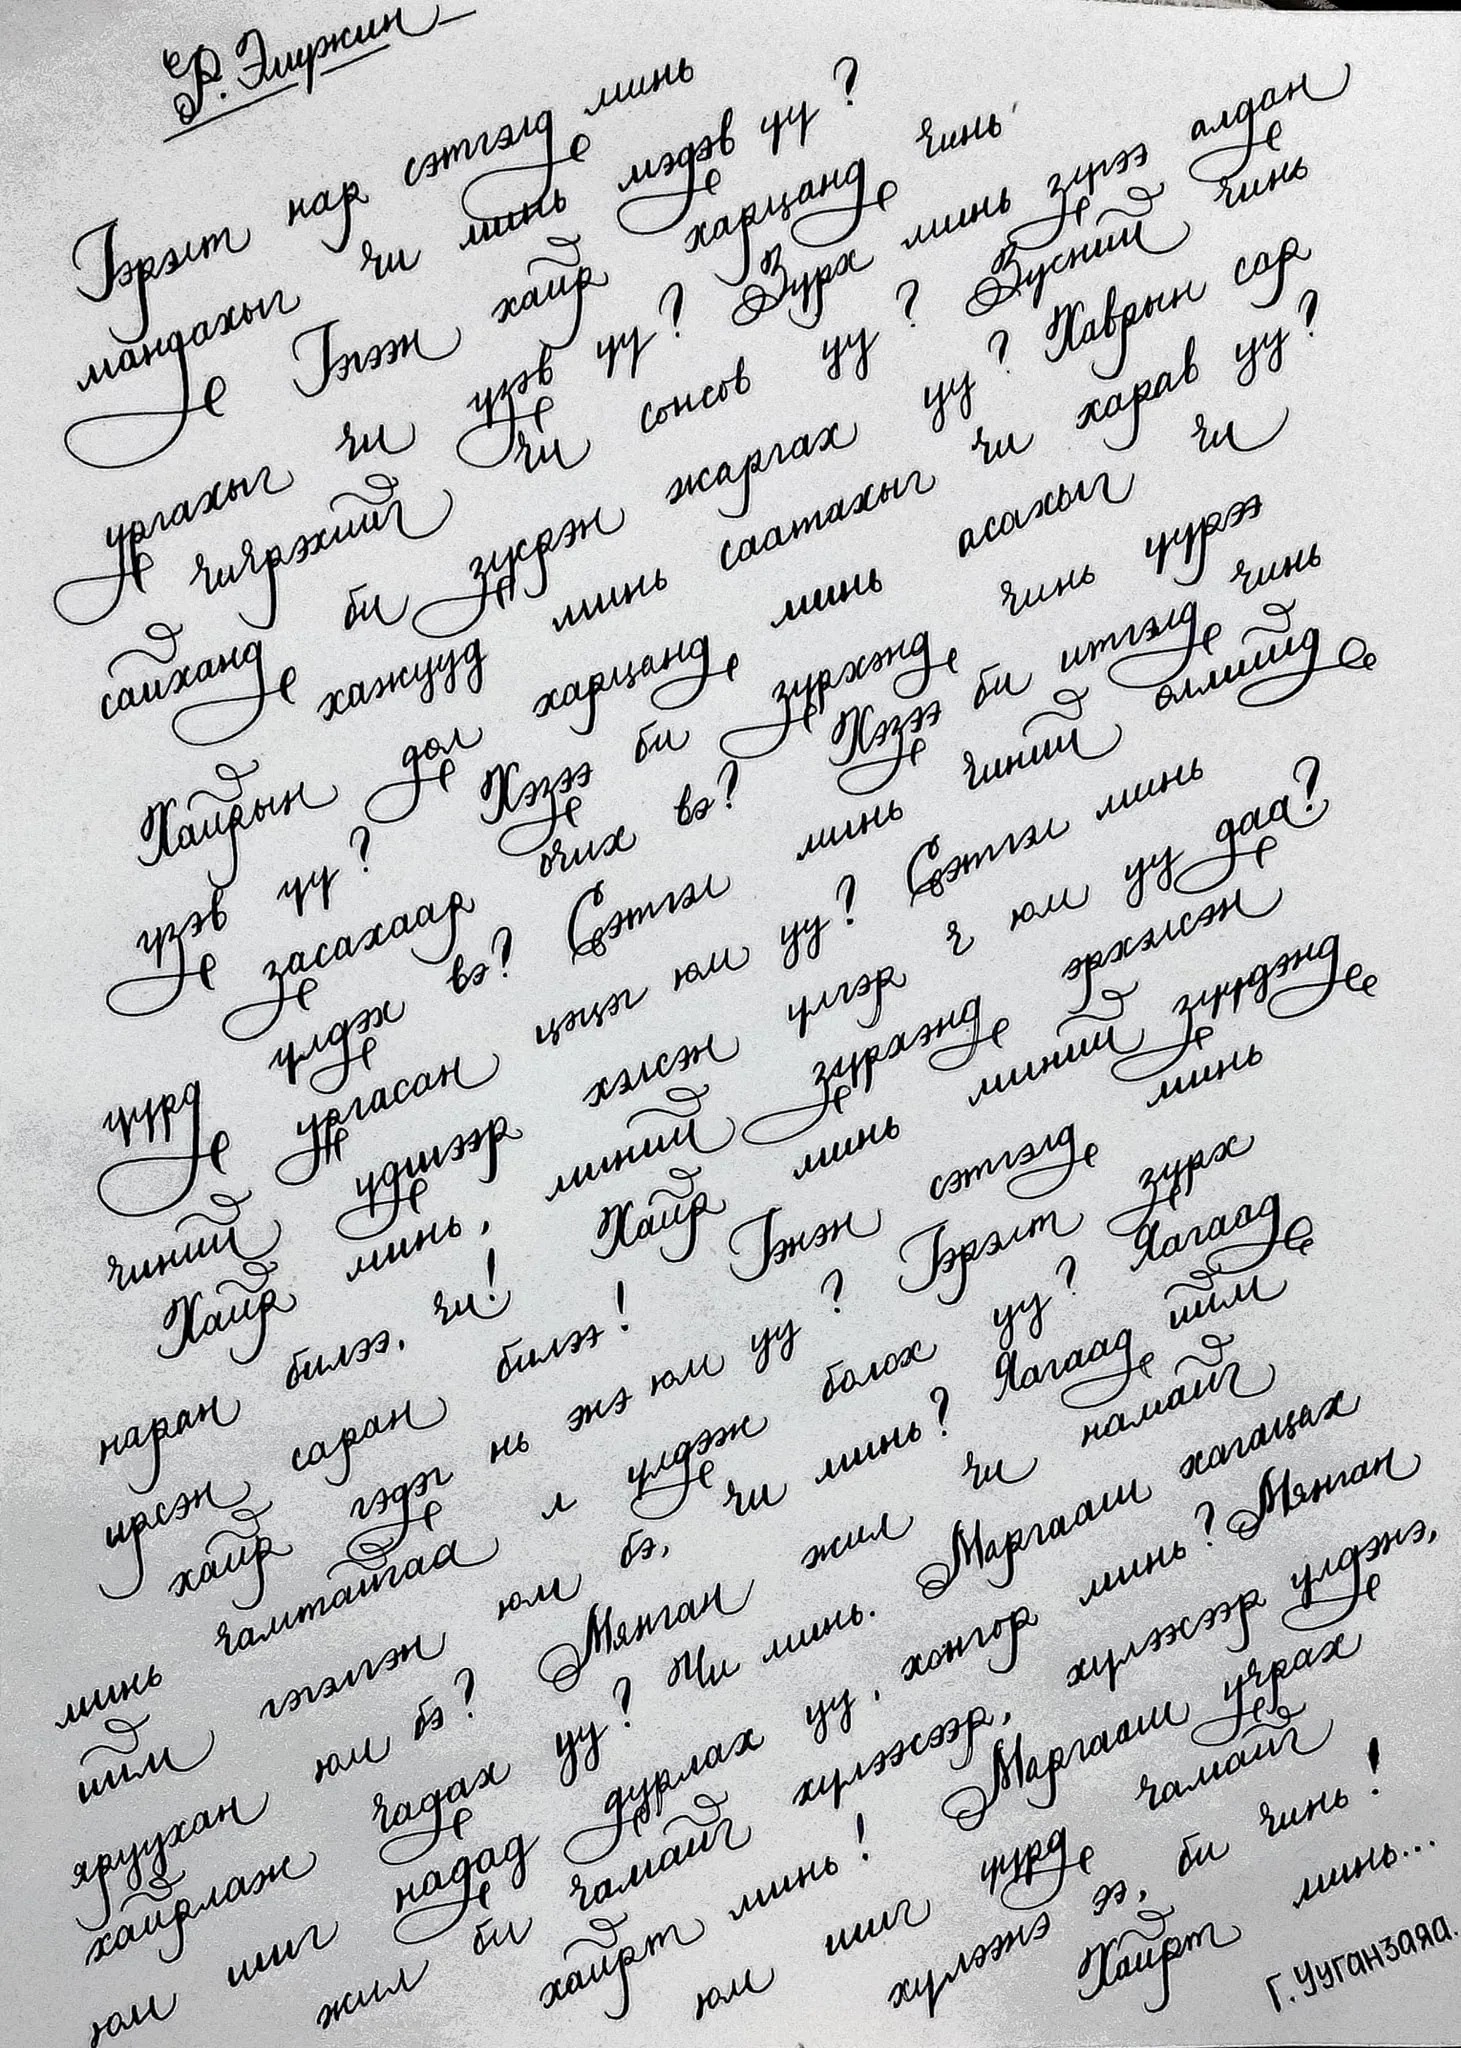 Р. Эмүжин
Гэрэлт нар сэтгэлд минь
мандахыг чи минь мэдэв үү?
Гэгээн хайр харцанд чинь
ургахыг чи үзэв үү? Зүрх минь зүгээ алдан
чичрэхийг чи сонсов уу? Зүсний чинь
сайханд би зүрэн жаргах уу? Хаврын сар
хажууд минь саатахыг чи харав уу?
Хайрын дөл харцанд минь асахыг чи
үзэв үү? Хэзээ би зүрхэнд чинь үүрээ
засахаар очих вэ? Хэзээ би итгэлд чинь
үүрд үлдэх вэ? Сэтгэл минь чиний өлмийд
ургасан цэцэг юм уу? Сэтгэл минь
чиний үдшээр хэлсэн үлгэр ч юм уу даа?
Хайр минь, миний зүрхэнд эрхэлсэн
наран билээ, чи! Хайр минь миний зүүдэнд
ирсэн саран билээ! Гэнэн сэтгэлд минь
хайр гэдэг нь энэ юм уу? Гэрэлт зүрх
минь чамтайгаа л үлдэж болох уу? Яагаад
ийм гэгэлгэн юм бэ, чи минь? Яагаад ийм
яруухан юм бэ? Мянган жил чи намайг
хайрлаж чадах уу? Чи минь. Маргааш хагацах
юм шиг надад дурлах уу, хонгор минь? Мянган
жил би чамайг хүлээсээр, хүлээсээр үлдэнэ,
хайрт минь! Маргааш учрах
юм шиг үүрд чамайг
хүлээнэ ээ, би чинь!
Хайрт минь...
Г. Ууганзаяа.